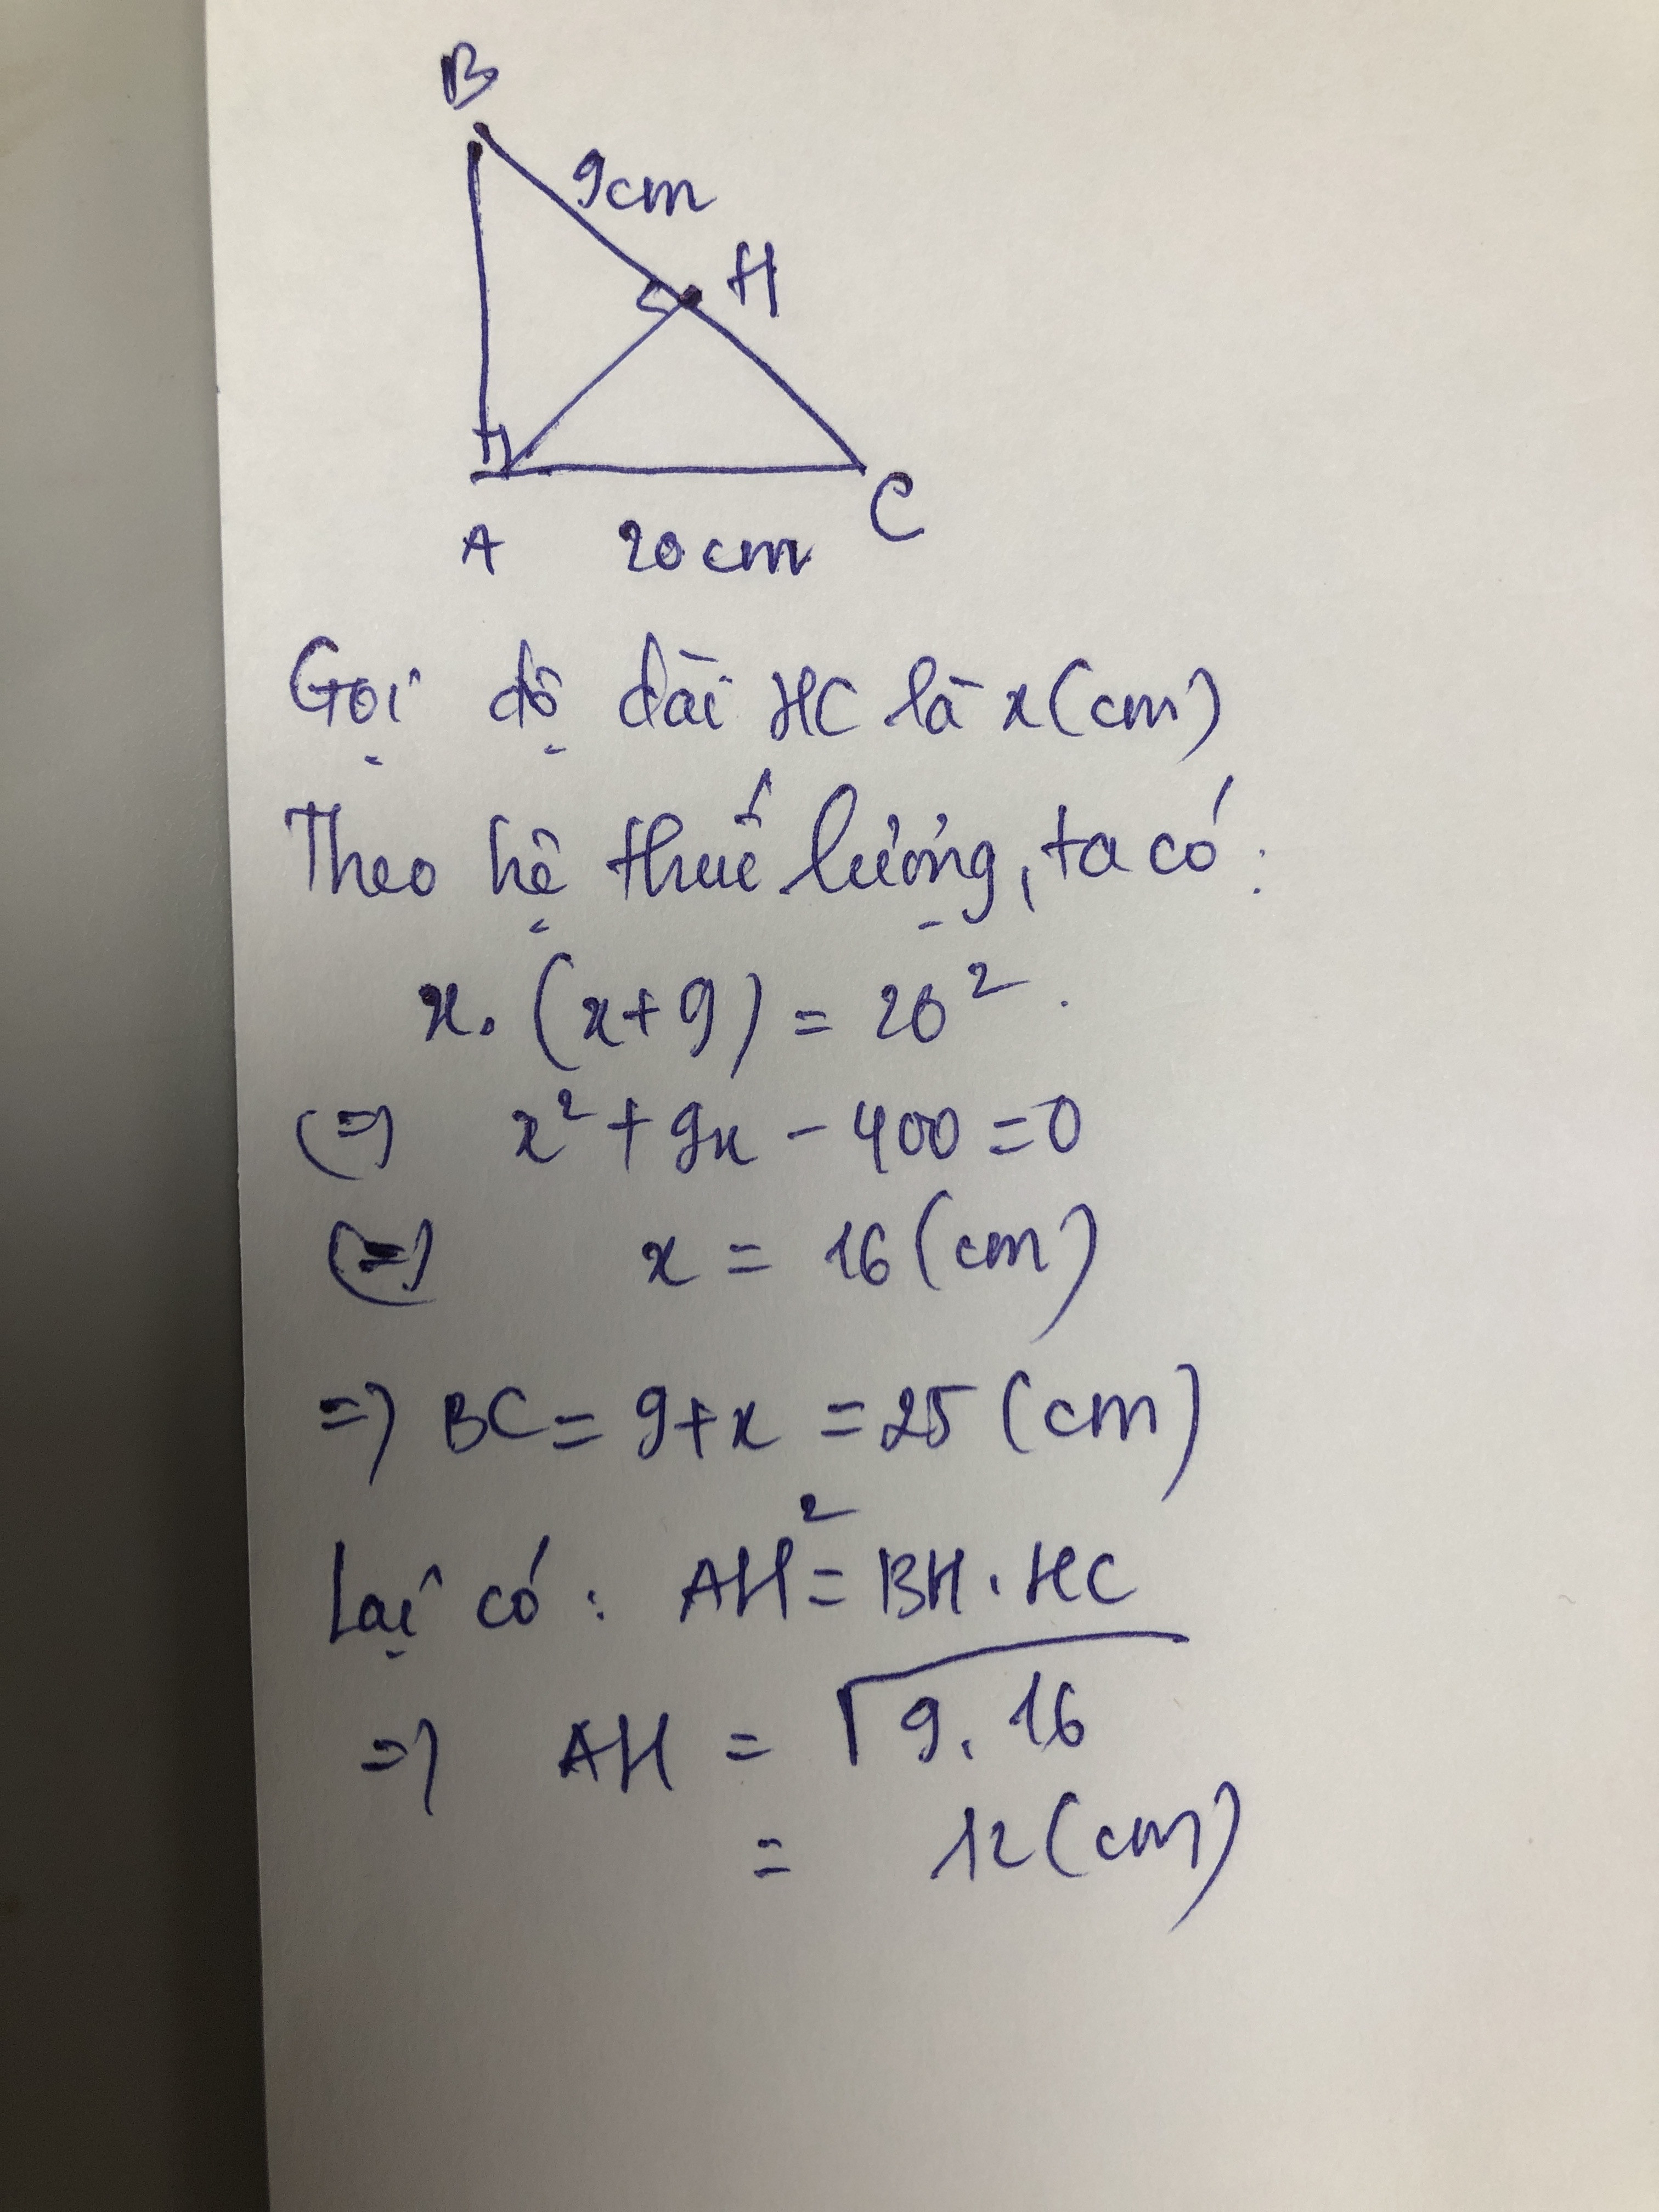 B
9cm
H
A
20cm
C
Gọi độ dài HC là x (cm)
Theo hệ thức lượng, ta có:
x. (x+9) = 20²
(=) x² + 9x - 400 = 0
(=) x = 16 (cm)
=) BC = 9+x = 25 (cm)
Lại có: AH² = BH . HC
=) AH = √9.16
= 12 (cm)